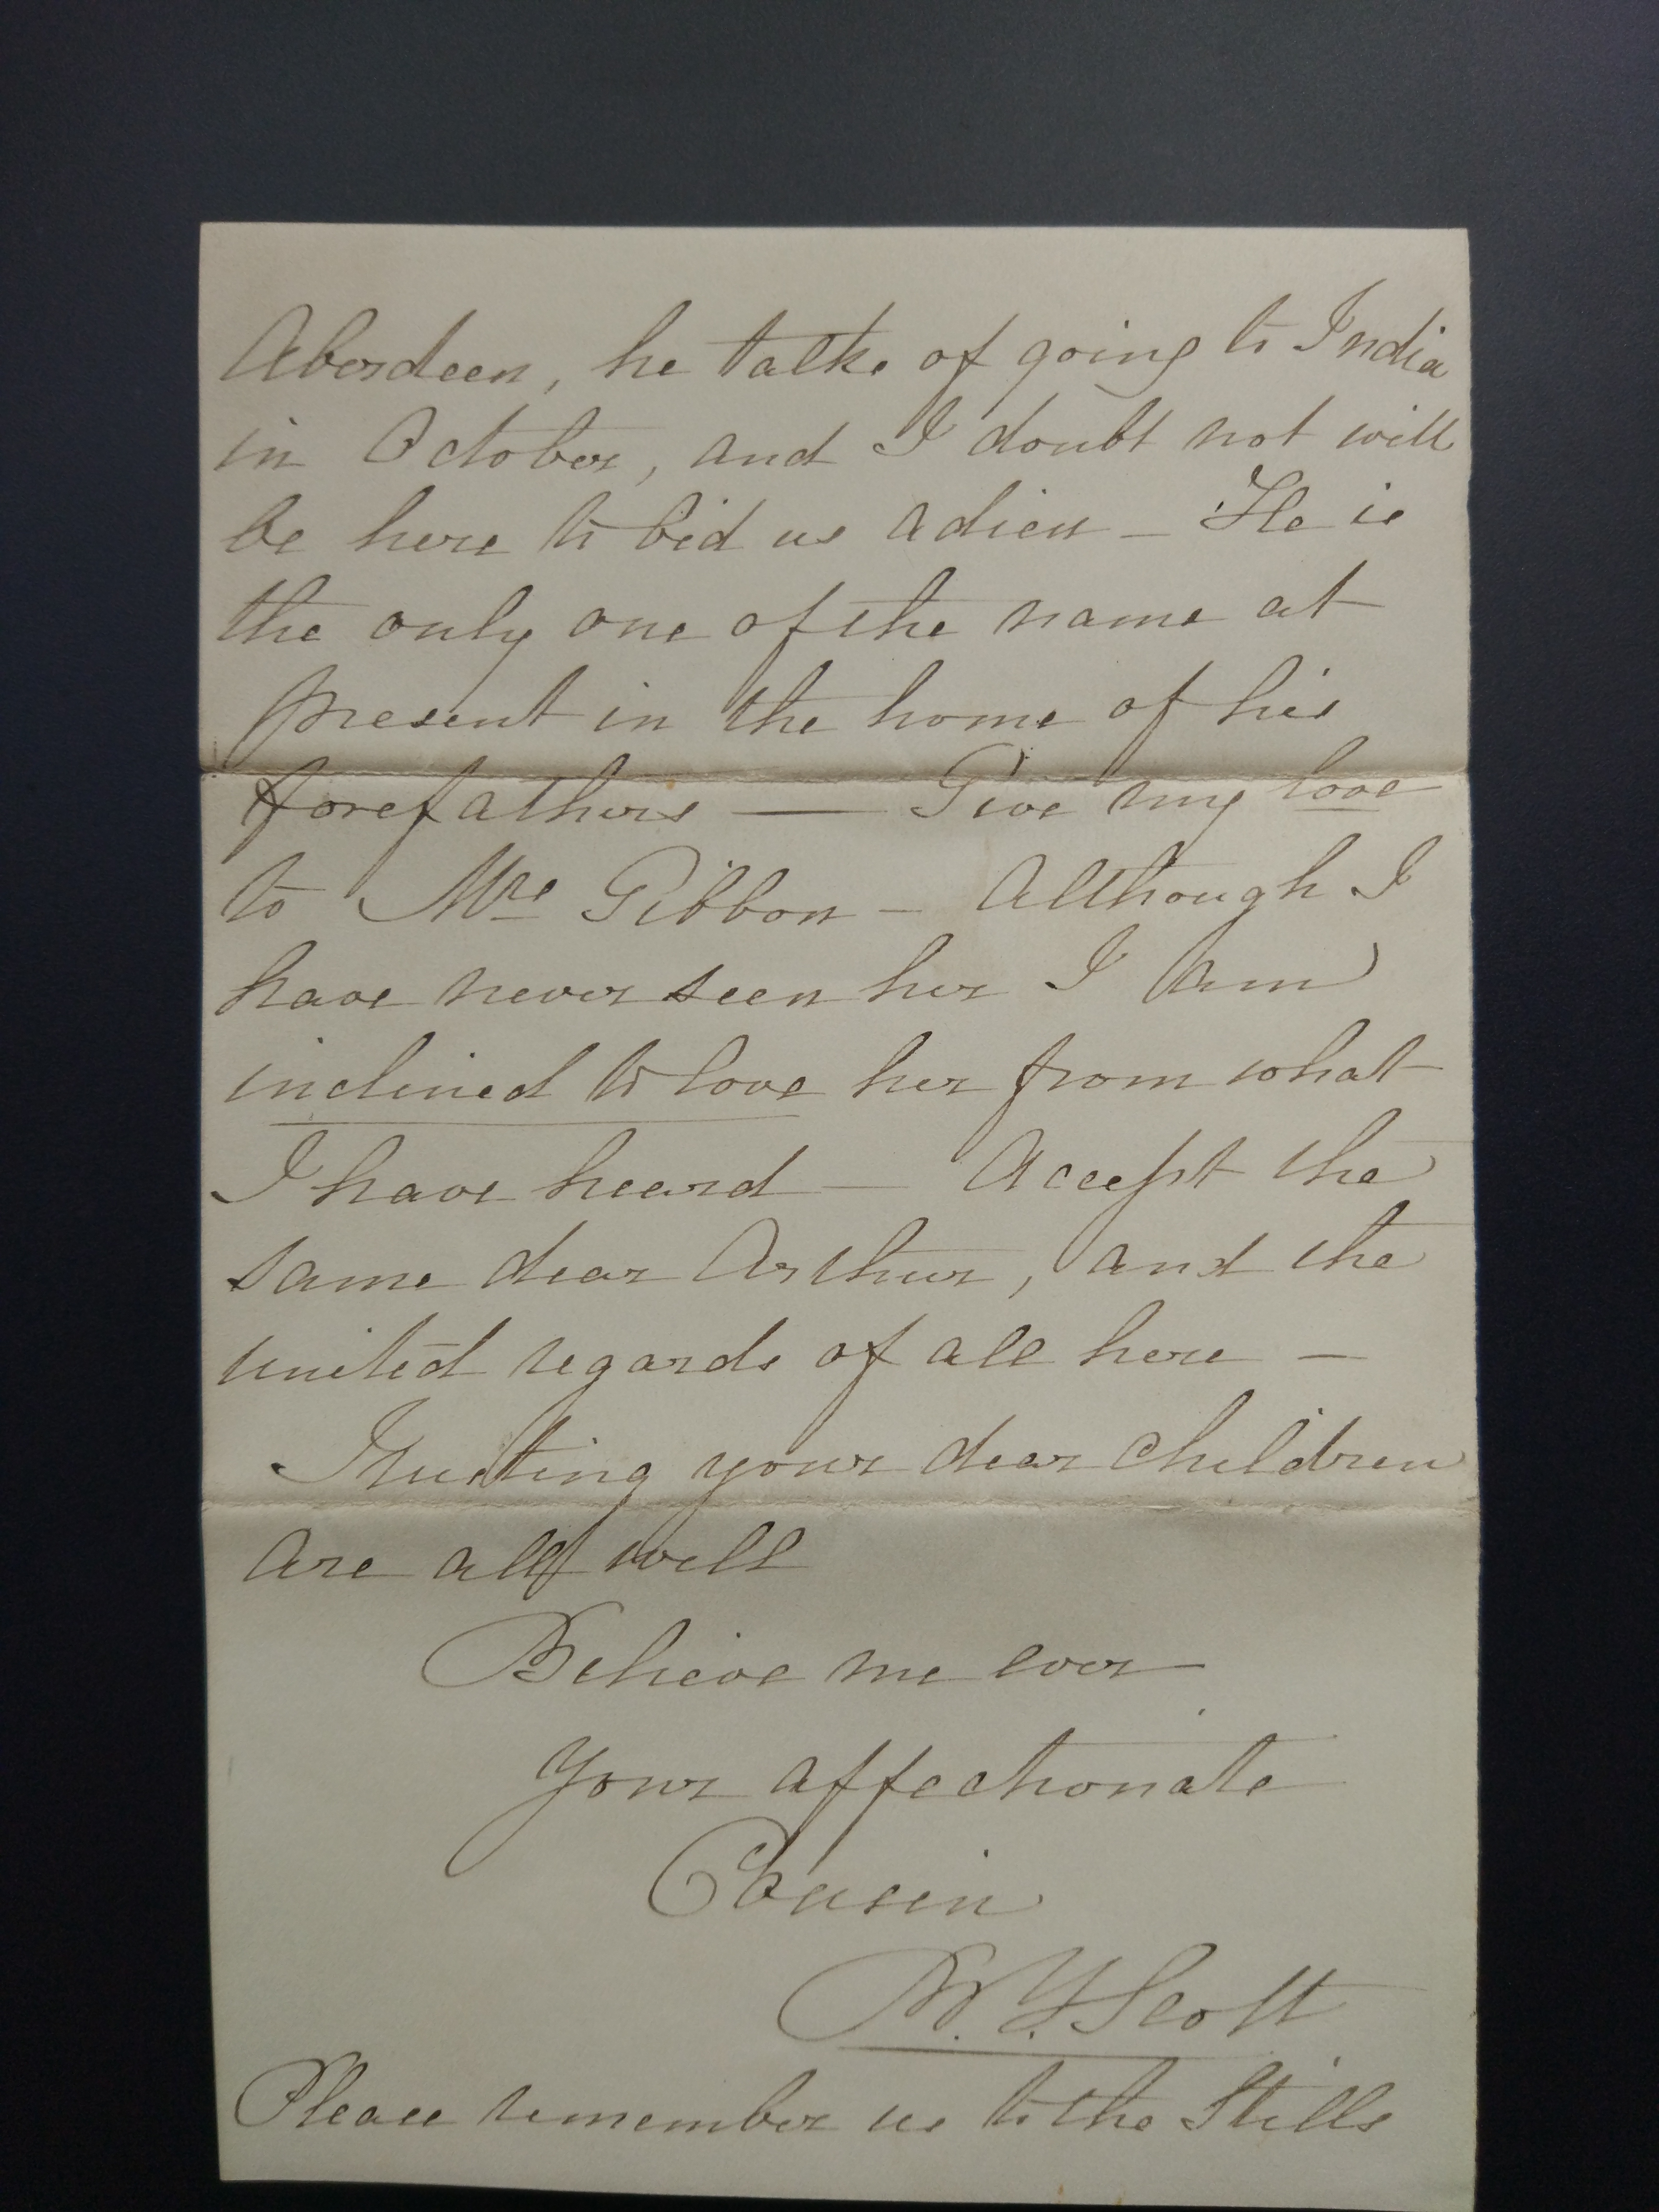 Aberdeen, he talks of going to India
in October, and I doubt not will
be here to bid us adieu — He is
the only one of the name at
present in the home of his
forefathers — Give my love
to Mrs Gibbon — Although I
have never seen her I am
inclined to love her from what
I have heard — Accept the
same dear Arthur, and the
united regards of all here —
Trusting your dear children
are all well
Believe me ever
Your affectionate
Cousin
Scott
Please remember us to the Stills